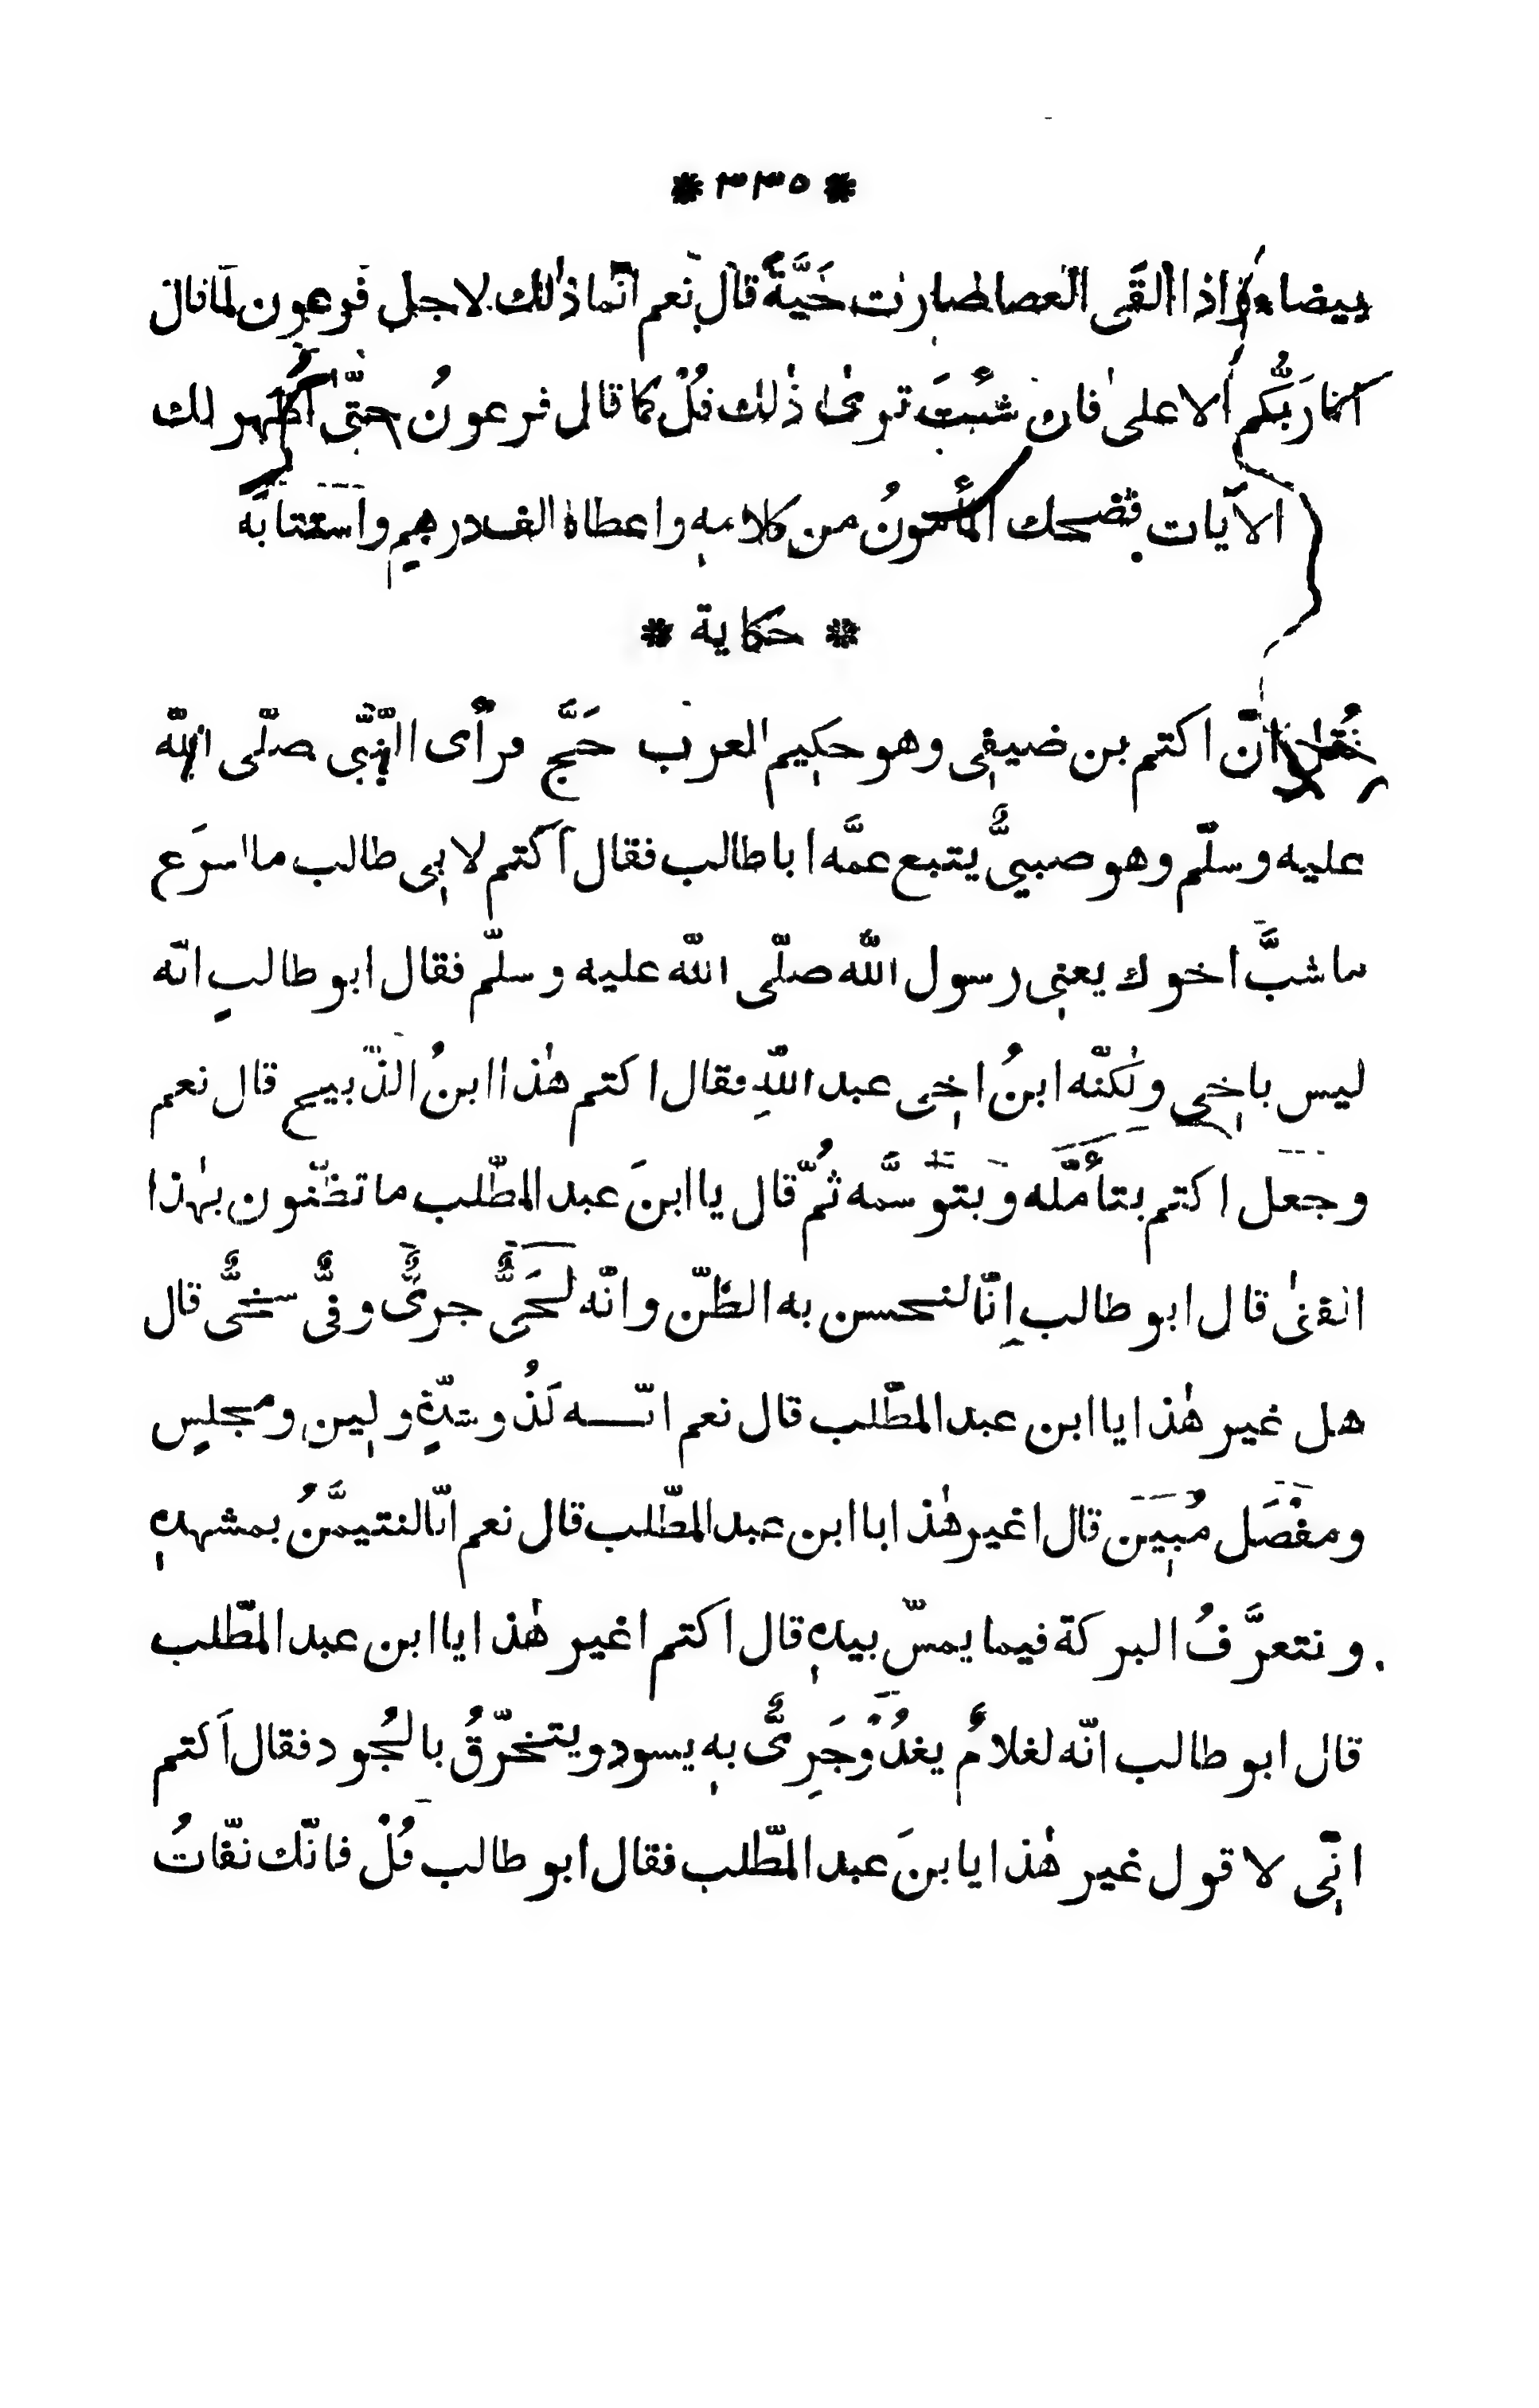 * ٣٣٥ *
بيضاء واذا القَى العصا صارت حَيَّةً قال نعم انّما ذٰلك لاجل فرعون لمّا قال
انا رَبُّكم الاعلىٰ فان شئتَ ترىٰ ذٰلك قُلْ كما قال فرعونُ حتّى اُظهر لك
الآيات فضحك المأمونُ من كلامهٖ واعطاهُ الف درهمٍ واستتابَهُ
* حكاية *
نُقِلَ انّ اكتم بن ضيفى وهو حكيم العرب حَجَّ فرأى النّبّى صلّى اللّٰه
عليه وسلّم وهو صبيٌّ يتبع عمَّه ابا طالب فقال اكتم لابى طالب ما اسرَع
ما شبَّ اخوك يعنى رسول اللّٰه صلّى اللّٰه عليه وسلّم فقال ابو طالبٍ انّه
ليس باخى ولٰكنّه ابنُ اخى عبد اللّٰهِ فقال اكتم هٰذا ابنُ الذّبيح قال نعم
وجعل اكتم يتأمَّله ويتوسَّمه ثُمّ قال يا ابنَ عبد المطّلب ما تظنّون بهٰذا
الفتىٰ قال ابو طالب اِنّا لنحسن به الظّنّ وانّه لَحَىٌّ جرىٌّ وفىٌّ سخىٌّ قال
هل غير هٰذا يا ابن عبد المطّلب قال نعم انّــه لَذُو شدّةٍ ولين ومجلسٍ
ومفْصَل مُبين قال اغير هٰذا يا ابن عبد المطّلب قال نعم انّا لنتيمَّنُ بمشهدهٖ
ونتعرَّفُ البركة فيما يمسّ بيدهٖ قال اكتم اغير هٰذا يا ابن عبد المطّلب
قال ابو طالب انّه لغلامٌ يغدُو جَرِىٌّ بهٖ يسود ويتخرّقُ بالجُود فقال اكتم
انّى لاقول غير هٰذا يا بنَ عبد المطّلب فقال ابو طالب قُلْ فانّك نقّاتُ